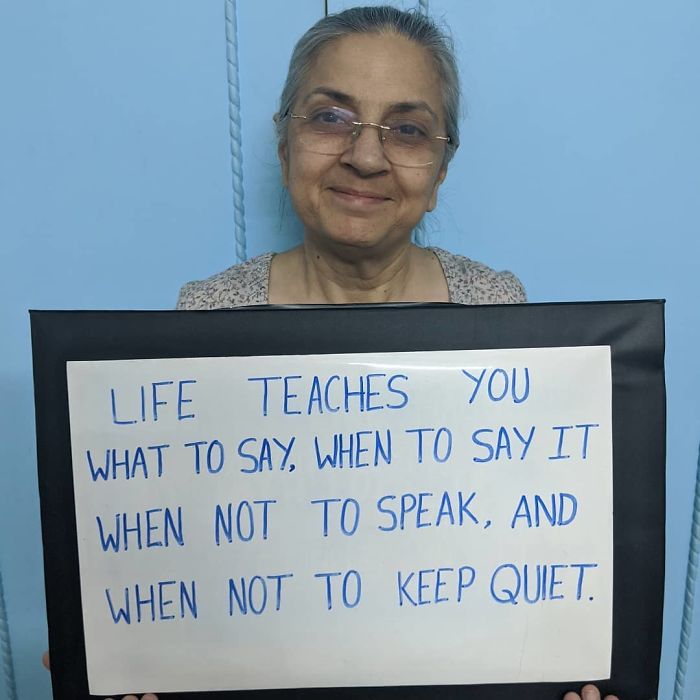 LIFE TEACHES YOU
WHAT TO SAY, WHEN TO SAY IT
WHEN NOT TO SPEAK, AND
WHEN NOT TO KEEP QUIET.